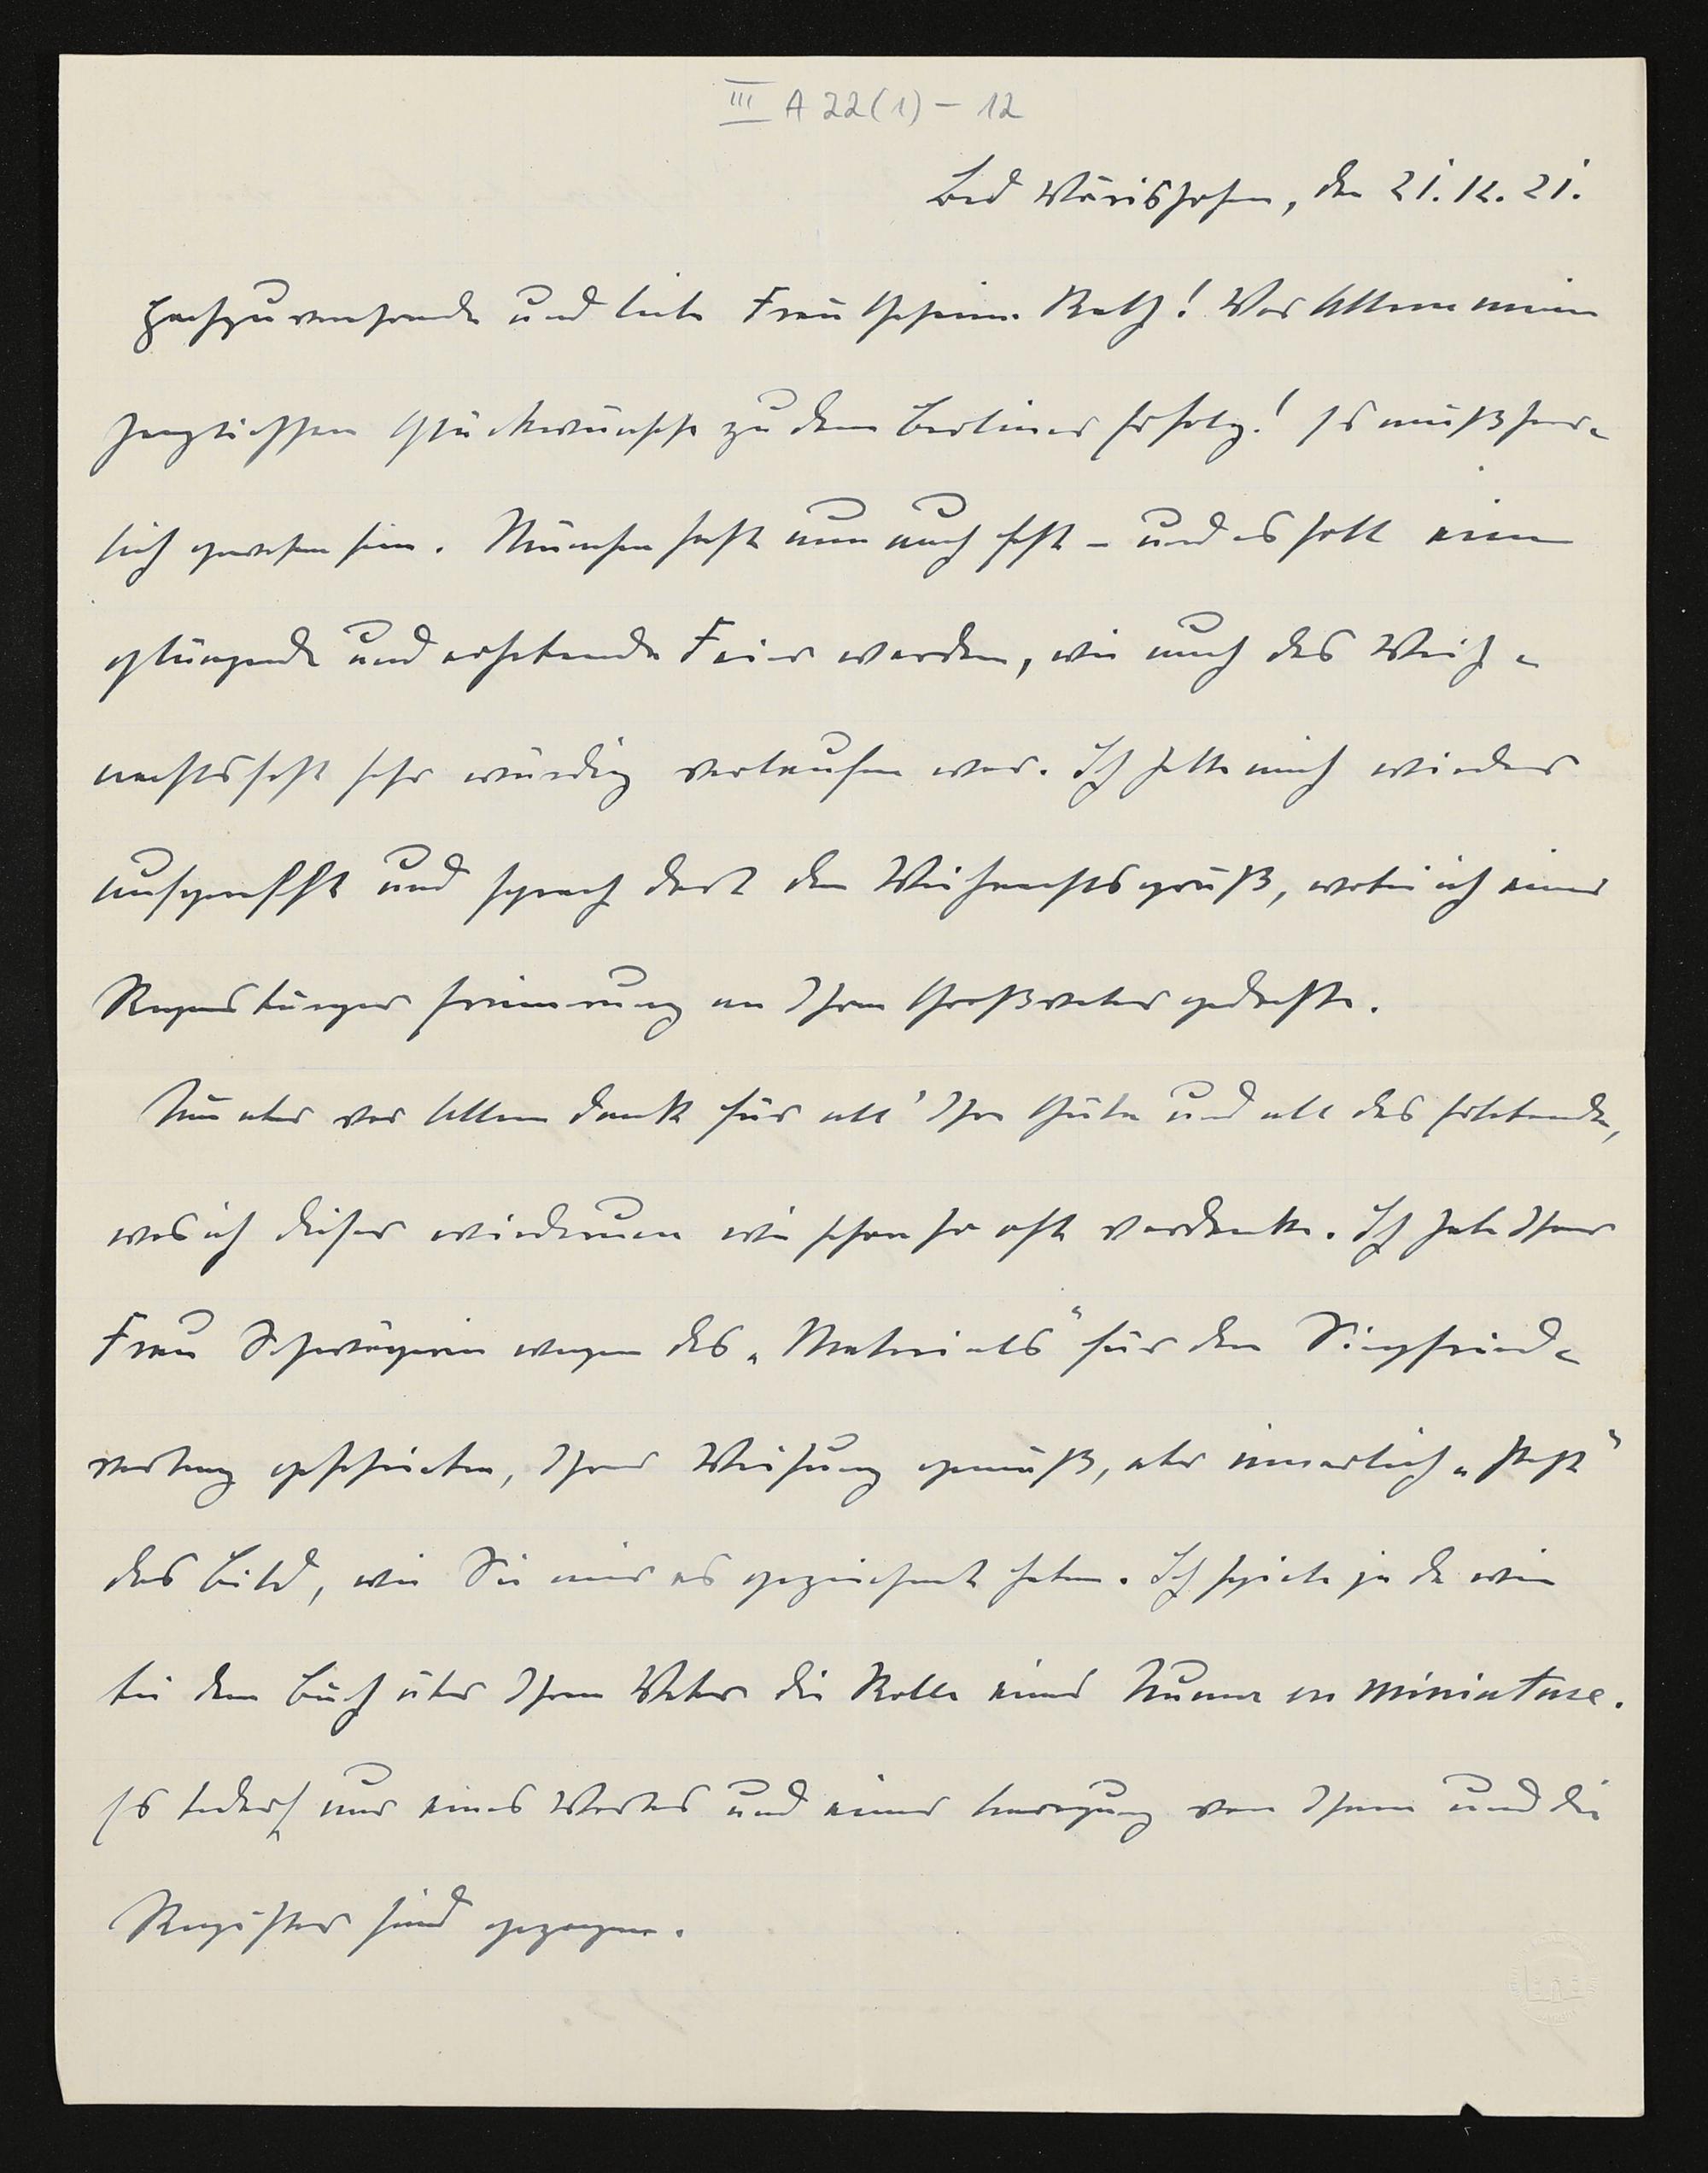 III A 22(1) – 12
Bad Wörishofen, den 21. 12. 21.
Hochzuverehrende und liebe Frau Geheime Rath! Vor Allem meine
herzlichsten Glückwünsche zu dem Berliner Erfolg! Es muß herr-
lich gewesen sein. München steht nun auch fest – und es soll eine
glänzende und erhebende Feier werden, wie auch das Weih-
nachtsfest sehr würdig verlaufen war. Ich hatte mich wieder
aufgerafft und sprach dort den Weihnachtsgruß, wobei ich einer
Regensburger Erinnerung an Ihren Großvater gedachte.
Nun aber vor Allem Dank für all' Ihre Güte und all das Erhebende,
was ich dieser wiederum wie schon so oft verdanke. Ich habe Ihrer
Frau Schwägerin wegen des „Materials" für den Siegfried-
vortrag geschrieben, Ihrer Weisung gemäß, aber innerlich „steht"
das Bild, wie Sie mir es gezeichnet haben. Ich spiele ja da wie
bei dem Buch über Ihren Vater die Rolle eines Numa en miniature.
Es bedarf nur eines Wortes und einer Anregung von Ihnen und die
Register sind gezogen.